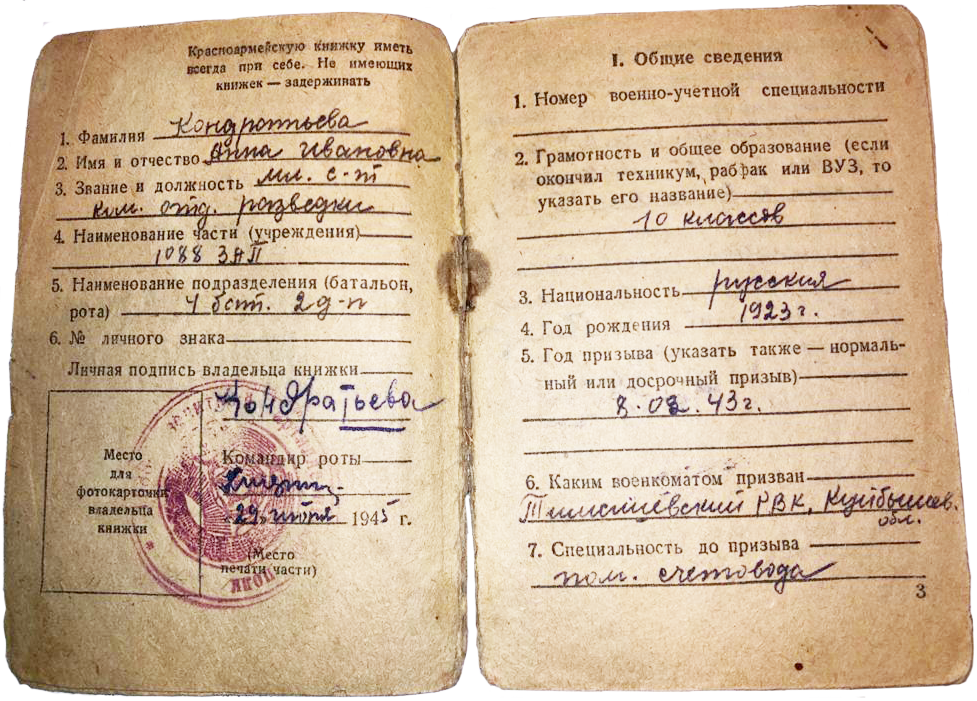 Красноармейскую книжку иметь
всегда при себе. Не имеющих
книжек — задерживать
1. Фамилия Кондратьева
2. Имя и отчество Анна Ивановна
3. Звание и должность мл. с-т
ком. отд. разведки
4. Наименование части (учреждения)
1088 ЗАП
5. Наименование подразделения (батальон,
рота) 4 бат. 2 д-н
6. № личного знака
Личная подпись владельца книжки
Кондратьева
Место
для
фотокарточки
владельца
книжки
Командир роты
«29» 1945 г.
(Место
печати части)
I. Общие сведения
1. Номер военно-учетной специальности
2. Грамотность и общее образование (если
окончил техникум, рабфак или ВУЗ, то
указать его название)
10 классов
3. Национальность русская
4. Год рождения 1923 г.
5. Год призыва (указать также — нормаль-
ный или досрочный призыв)
8.02.43 г.
6. Каким военкоматом призван
РВК, Куйбышев.
обл.
7. Специальность до призыва
пом. счетовода
3